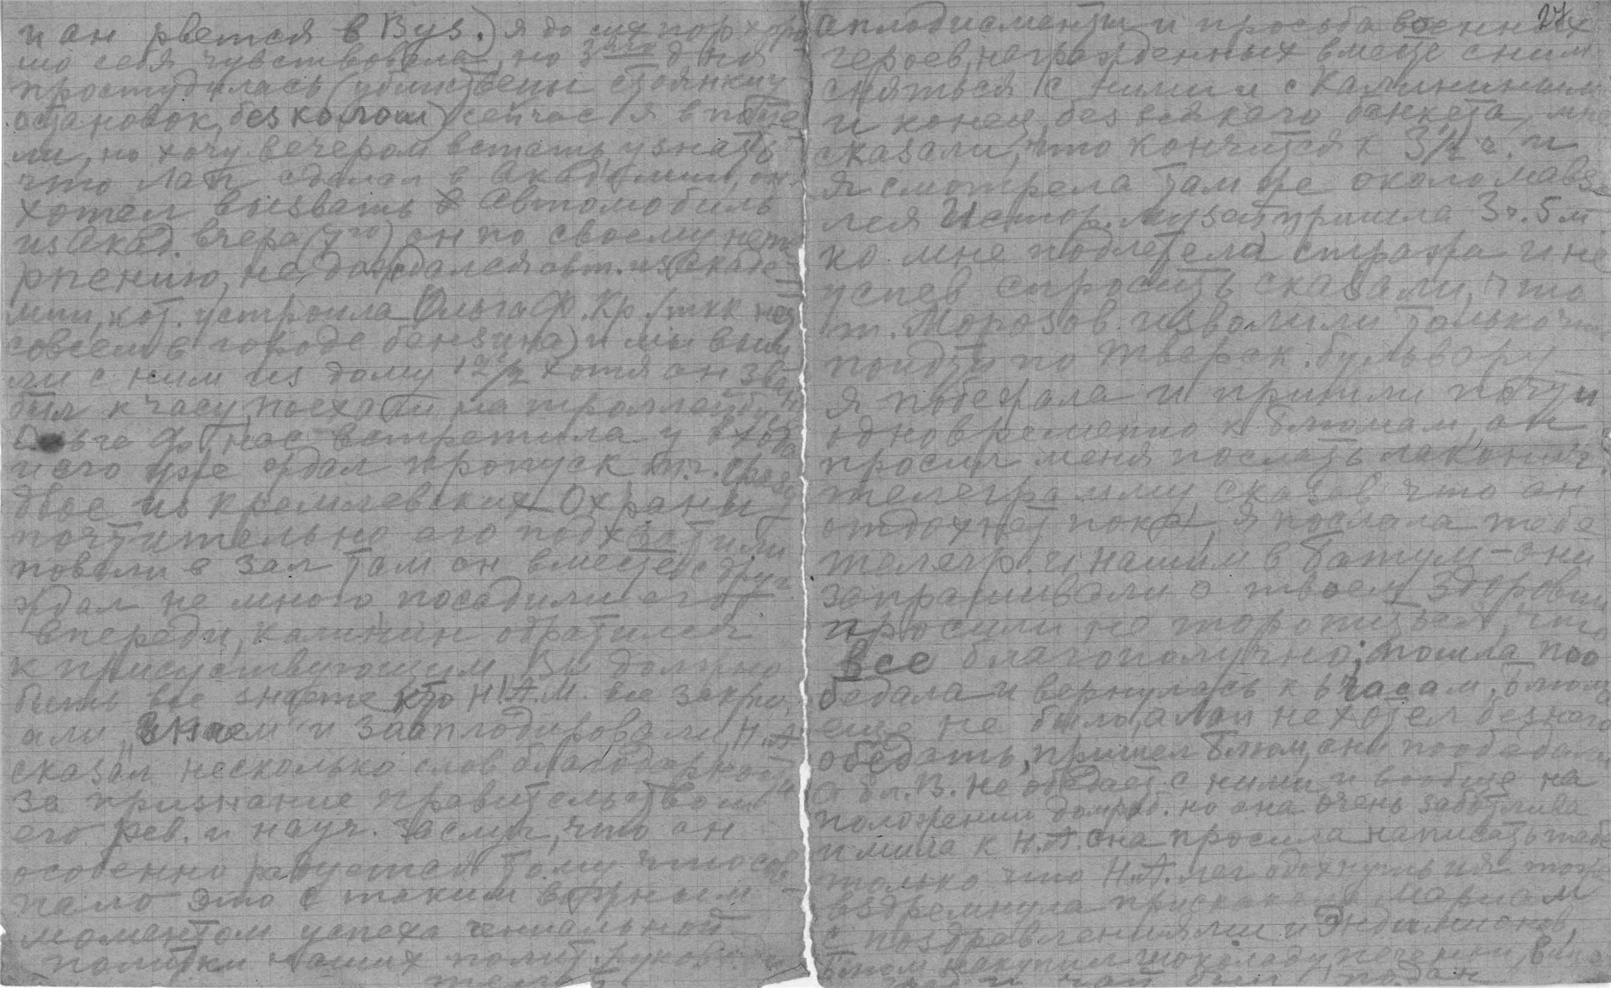 и он рвется в Вуз.) я до сих пор хоро
шо себя чувствовала, но 3 дня
простудилась (убийствены стоянки у
остановок, без калош) сейчас я в посте
ли, но хочу вечером встать, узнать
что Лап сделал в Академии, он
хотел вызвать автомобиль
из Акад. вчера он по своему нете
рпению, не дождался авт. из Акаде
мии, кот. устроила Ольга Ф. Кр. нет
совсем в городе бензина) и мы выш
ли с ним из дому 12 1/2 хотя он зван
был к часу, поехали на троллейбусе
Ольге Ф. нас встретила у входа
и его уже ждал пропуск и т. сразу
двое из кремлевских Охраны
почтительно его подхватили
повели в зал там он вместе с друг
ждал не много, посадили его
впереди, Калинин обратился
к присутствующим Вы должно
быть все знаете кто Н.А.М. все закри
чали "знаем" и зааплодировали, Н.А
сказал несколько слов благодарност
за признание правительством
его рев. и науч. заслуг, что он
особенно радуется тому что сов
пало это с таким бурным
моментом успеха гениальной
политки наших полит. руково
27
аплодисменты и просьба военных
героев, награжденных вместе с ним
сняться с ними и с Калининым
и конец, без всякого банкета, мне
сказали, что кончится к 3 1/2 ч. и
я смотрела там же около мавзо
лея Истор. музей пришла 3 ч. 5 м
ко мне подлетела стража и не
успев спросить сказали, что
т. Морозов изволили только что
пойдти по Тверск. бульвару
я побежала и пришли почти
одновременно к Блюмам, он
просил меня послать лаконич.
телеграмму сказав что он
отдохнет пока, я послала тебе
телегр. и нашим в Батум – они
запрашивали о твоем здоровьи
просили не торопиться, что
все благополучно; пошла поо
бедала и вернулась к 6 часам, Блюма
еще не было, а Лап не хотел без него
обедать, пришел Блюм, они пообедали
О. Бл. В. не обедает с ними и вообще на
положении домраб. но она очень заботлива
и мила к Н.А. она просила написать тебе
только что Н.А. лег отдохнуть и я тоже
вздремнула прискакала Мариам
с поздравлениями и Эндимионов,
Блюм накупил шоколаду, печений, вина